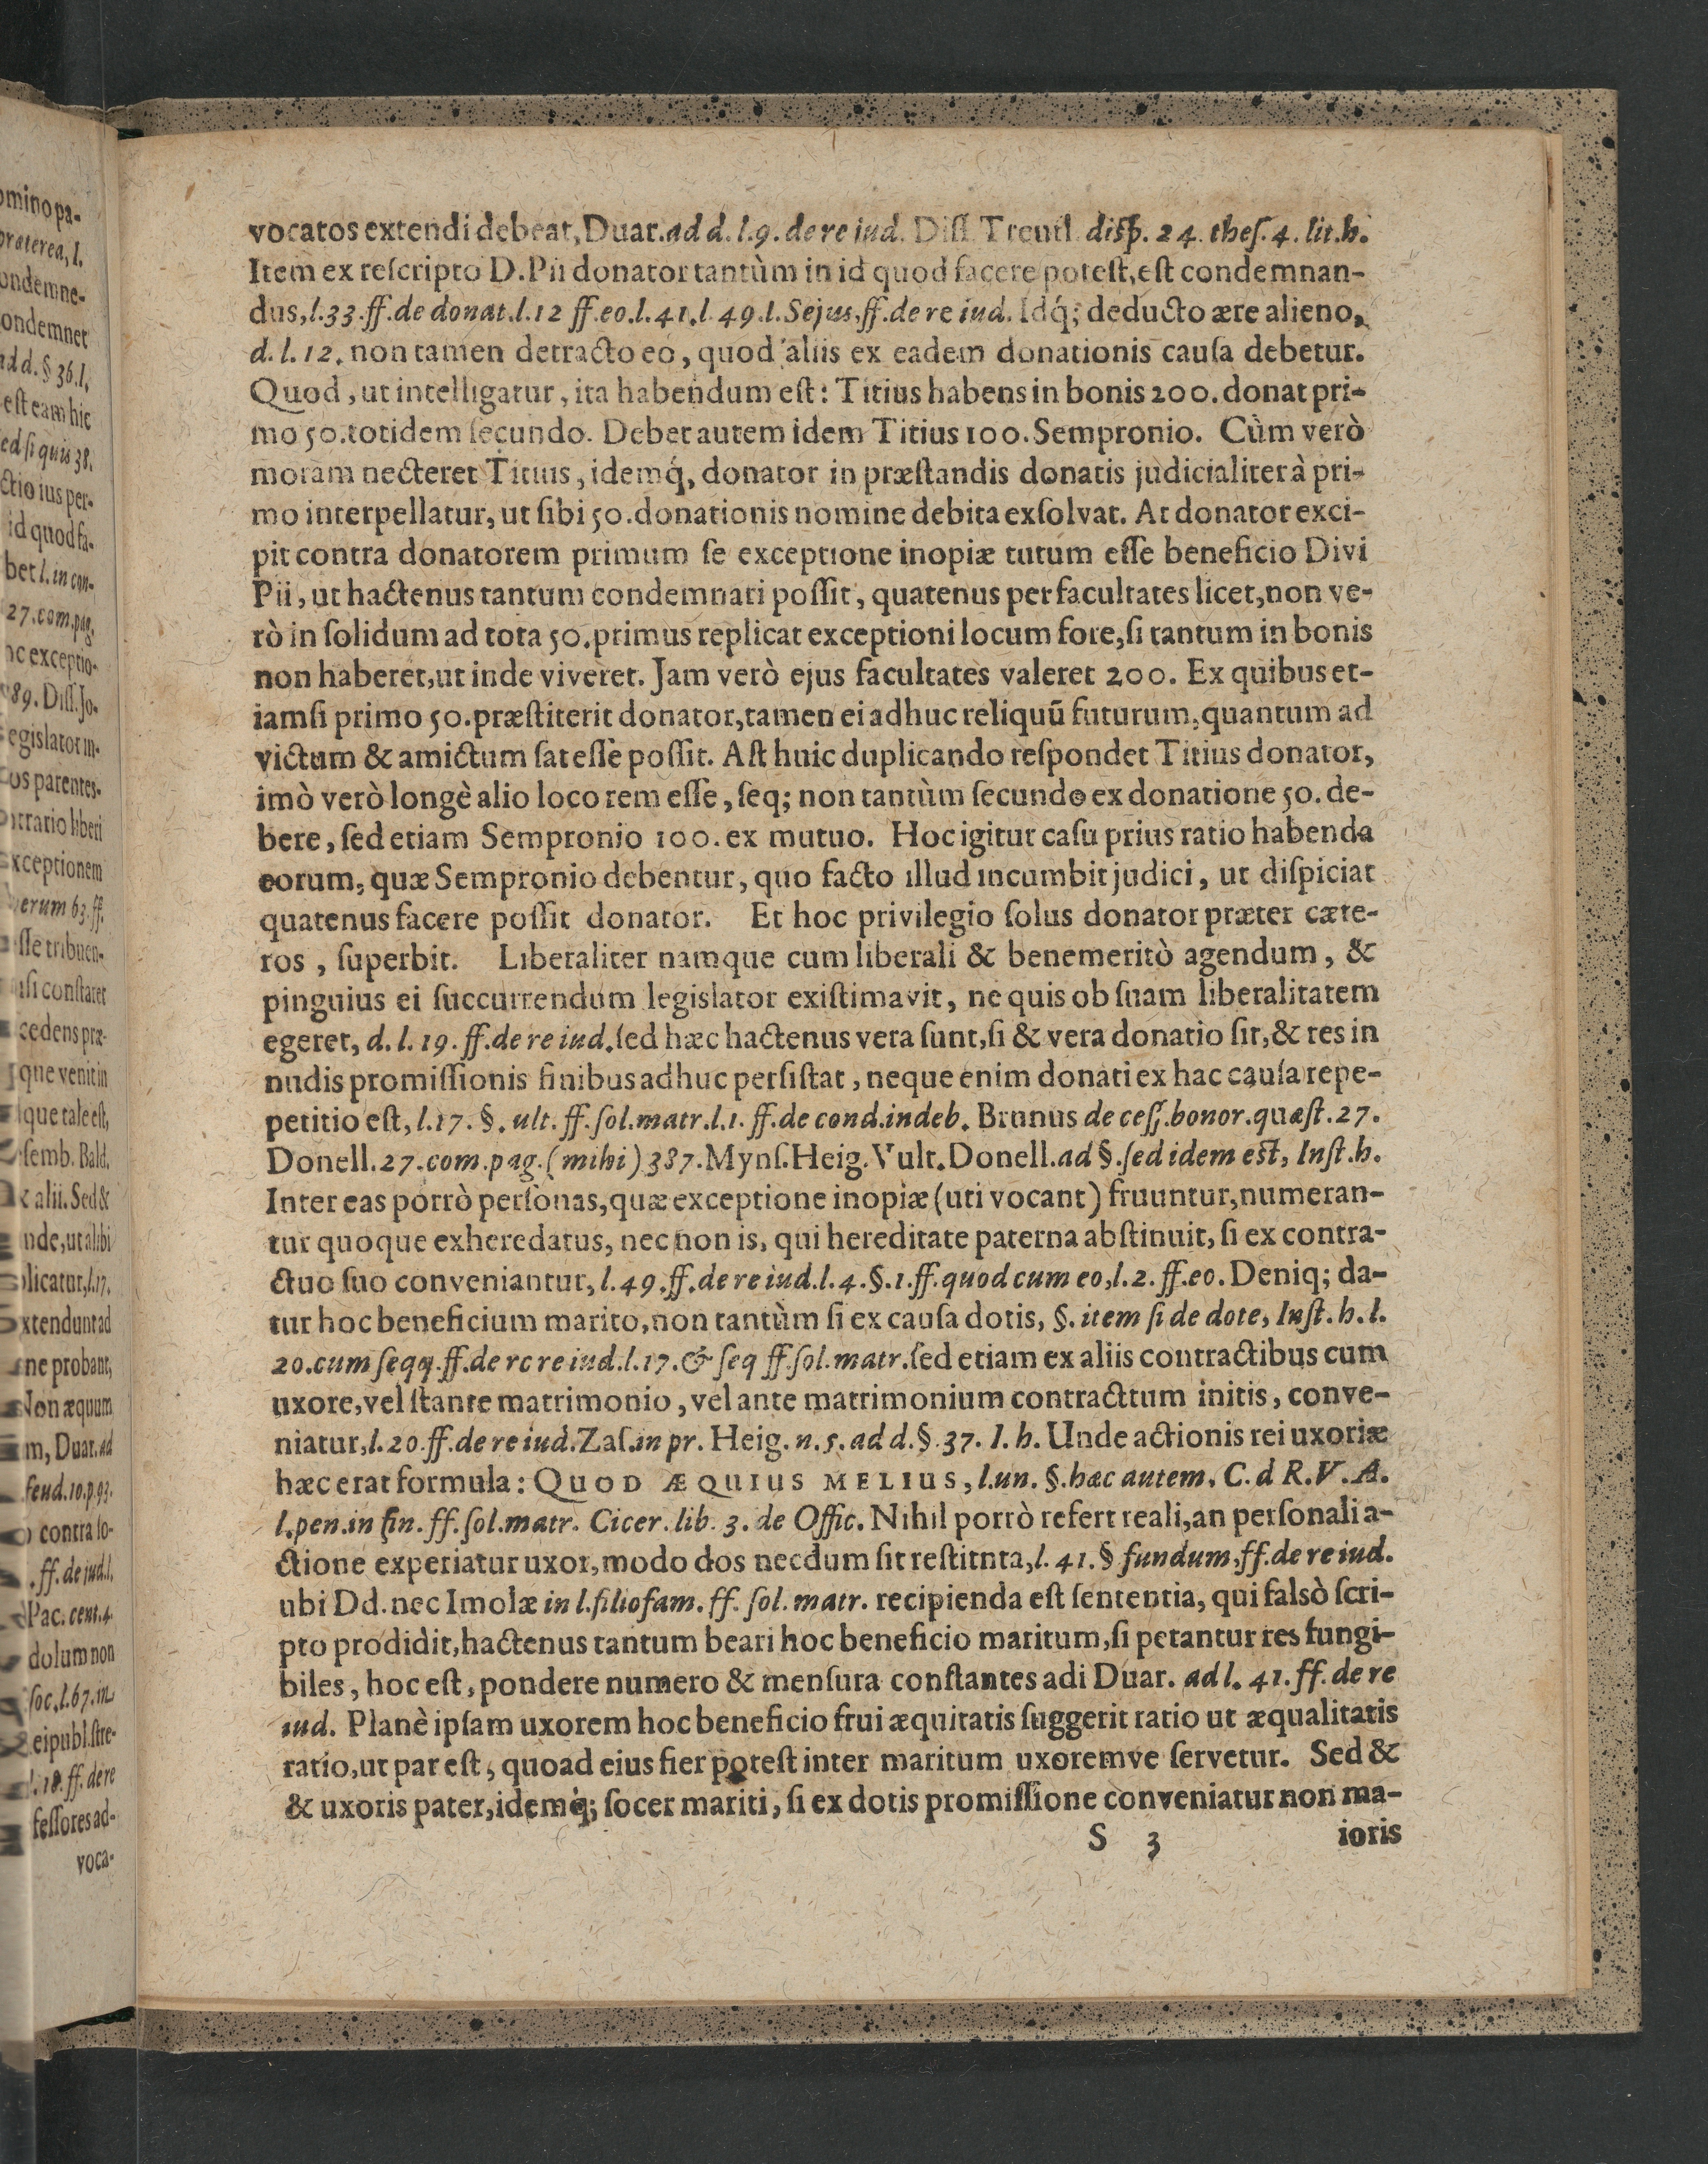 vocatos extendi debeat, Duar. ad d. l. 9. de re iud. Diss. Treutl. disp. 24. thes. 4. lit. h.
Item ex rescripto D. Pii donator tantùm in id quod facere potest, est condemnan-
dus, l. 33. ff. de donat. l. 12 ff. eo. l. 41. l. 49. l. Sejus. ff. de re iud. Idq́; deducto ære alieno,
d. l. 12. non tamen detracto eo, quod aliis ex eadem donationis causa debetur.
Quod, ut intelligatur, ita habendum est: Titius habens in bonis 200. donat pri-
mo 50. totidem secundo. Debet autem idem Titius 100. Sempronio. Cùm verò
moram necteret Titius, idemq́, donator in præstandis donatis judicialiter à pri-
mo interpellatur, ut sibi 50. donationis nomine debita exsolvat. At donator exci-
pit contra donatorem primum se exceptione inopiæ tutum esse beneficio Divi
Pii, ut hactenus tantum condemnari possit, quatenus per facultates licet, non ve-
rò in solidum ad tota 50. primus replicat exceptioni locum fore, si tantum in bonis
non haberet, ut inde viveret. Jam verò ejus facultates valeret 200. Ex quibus et-
iamsi primo 50. præstiterit donator, tamen ei adhuc reliquũ futurum, quantum ad
victum & amictum sat esse possit. Ast huic duplicando respondet Titius donator,
imò verò longè alio loco rem esse, seq; non tantùm secundo ex donatione 50. de-
bere, sed etiam Sempronio 100. ex mutuo. Hoc igitur casu prius ratio habenda
eorum, quæ Sempronio debentur, quo facto illud incumbit judici, ut dispiciat
quatenus facere possit donator. Et hoc privilegio solus donator præter cæte-
ros, superbit. Liberaliter namque cum liberali & benemeritò agendum, &
pinguius ei succurrendum legislator existimavit, ne quis ob suam liberalitatem
egeret, d. l. 19. ff. de re iud. sed hæc hactenus vera sunt, si & vera donatio sit, & res in
nudis promissionis finibus adhuc persistat, neque enim donati ex hac causa repe-
petitio est, l. 17. §. ult. ff. sol. matr. l. 1. ff. de cond. indeb. Brunus de cess. bonor. quæst. 27.
Donell. 27. com. pag. (mihi) 387. Myns. Heig. Vult. Donell. ad §. sed idem est, Inst. h.
Inter eas porrò personas, quæ exceptione inopiæ (uti vocant) fruuntur, numeran-
tur quoque exheredatus, nec non is, qui hereditate paterna abstinuit, si ex contra-
ctuo suo conveniantur, l. 49. ff. de re iud. l. 4. §. 1. ff. quod cum eo, l. 2. ff. eo. Deniq; da-
tur hoc beneficium marito, non tantùm si ex causa dotis, §. item si de dote, Inst. h. l.
20. cum seqq. ff. de rc re iud. l. 17. & seq ff. sol. matr. sed etiam ex aliis contractibus cum
uxore, vel stante matrimonio, vel ante matrimonium contracttum initis, conve-
niatur, l. 20. ff. de re iud. Zas. in pr. Heig. n. 5. ad d. §. 37. I. h. Unde actionis rei uxoriæ
hæc erat formula: QUOD ÆQUIUS MELIUS, l. un. §. hæc autem. C. d R. V. A.
l. pen. in fin. ff. sol. matr. Cicer. lib. 3. de Offic. Nihil porrò refert reali, an personali a-
ctione experiatur uxor, modo dos necdum sit restitnta, l. 41. § fundum, ff. de re iud.
ubi Dd. nec Imolæ in l. filiofam. ff. sol. matr. recipienda est sententia, qui falsò scri-
pto prodidit, hactenus tantum beari hoc beneficio maritum, si petantur res fungi-
biles, hoc est, pondere numero & mensura constantes adi Duar. ad l. 41. ff. de re
iud. Planè ipsam uxorem hoc beneficio frui æquitatis suggerit ratio ut æqualitatis
ratio, ut par est, quoad eius fier potest inter maritum uxoremve servetur. Sed &
& uxoris pater, idemq́; socer mariti, si ex dotis promissione conveniatur non ma-
S 3 ioris